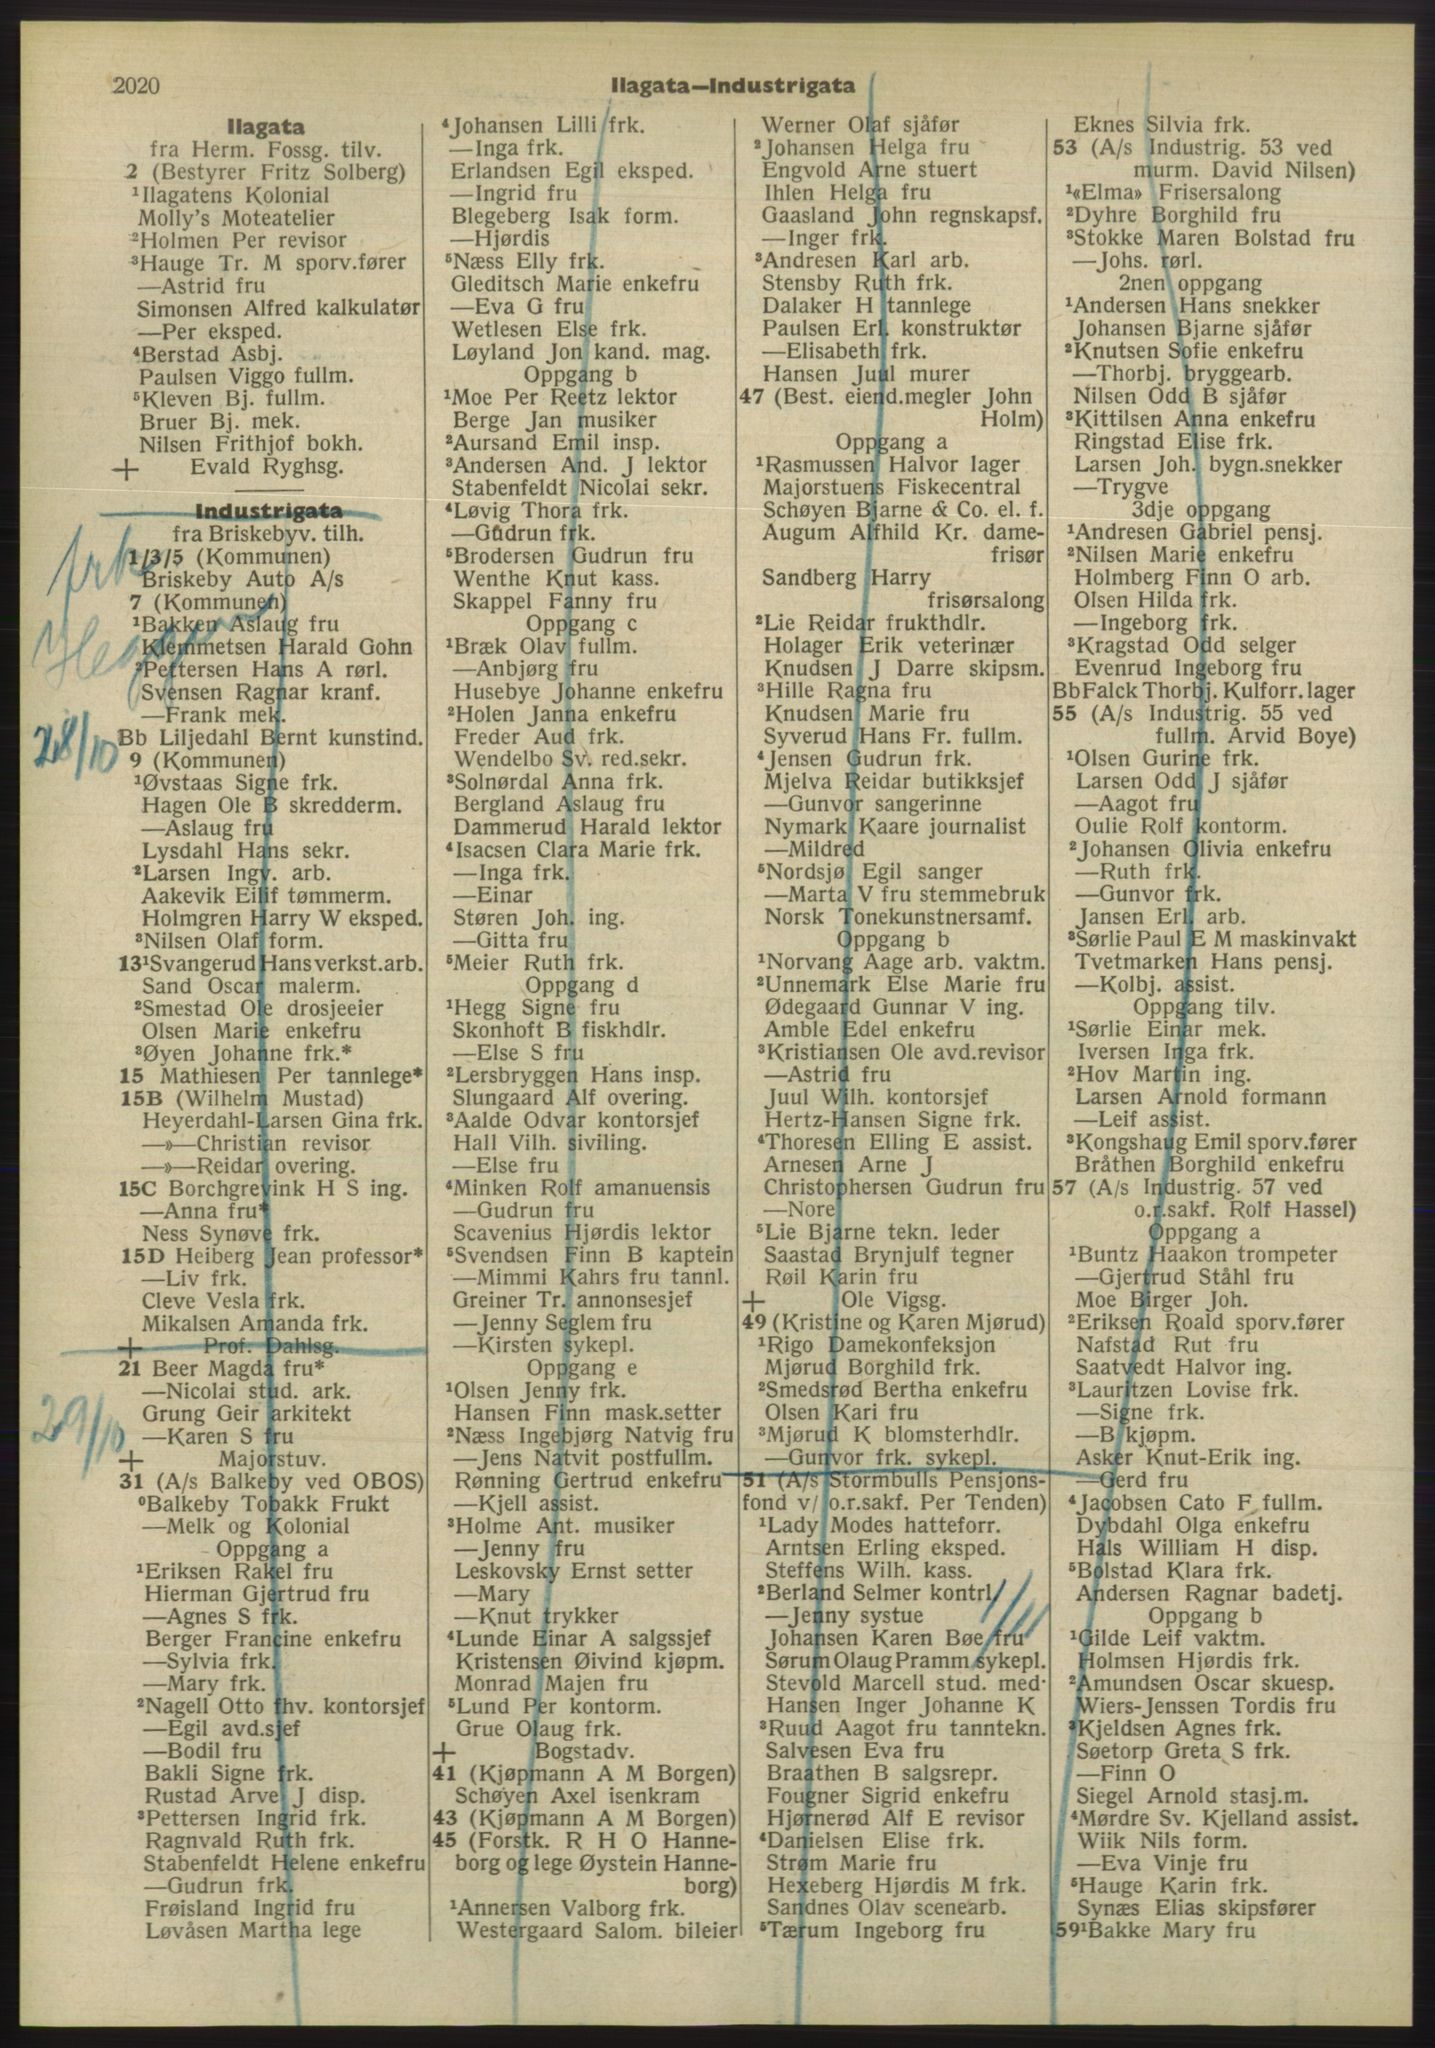 2020
Ilagata—Industrigata
Ilagata
fra Herm. Fossg. tilv.
2 (Bestyrer Fritz Solberg)
¹Ilagatens Kolonial
Molly's Moteatelier
²Holmen Per revisor
³Hauge Tr. M sporv.fører
—Astrid fru
Simonsen Alfred kalkulatør
—Per eksped.
⁴Berstad Asbj.
Paulsen Viggo fullm.
⁵Kleven Bj. fullm.
Bruer Bj. mek.
Nilsen Frithjof bokh.
+ Evald Ryghsg.
Industrigata
fra Briskebyv. tilh.
frk
1/3/5 (Kommunen)
Briskeby Auto A/s
7 (Kommunen)
¹Bakken Aslaug fru
Klemmetsen Harald Gohn
²Pettersen Hans A rørl.
Svensen Ragnar kranf.
—Frank mek.
28/10
Bb Liljedahl Bernt kunstind.
9 (Kommunen)
¹Øvstaas Signe frk.
Hagen Ole B skredderm.
—Aslaug fru
Lysdahl Hans sekr.
²Larsen Ingv. arb.
Aakevik Eilif tømmerm.
Holmgren Harry W eksped.
³Nilsen Olaf form.
13¹Svangerud Hans verkst.arb.
Sand Oscar malerm.
²Smestad Ole drosjeeier
Olsen Marie enkefru
³Øyen Johanne frk.*
15 Mathiesen Per tannlege*
15B (Wilhelm Mustad)
Heyerdahl-Larsen Gina frk.
—»—Christian revisor
—»—Reidar overing.
15C Borchgrevink H S ing.
—Anna fru*
Ness Synøve frk.
15D Heiberg Jean professor*
—Liv frk.
Cleve Vesla frk.
Mikalsen Amanda frk.
+ Prof. Dahlsg.
21 Beer Magda fru*
—Nicolai stud. ark.
Grung Geir arkitekt
29/10
—Karen S fru
+ Majorstuv.
31 (A/s Balkeby ved OBOS)
⁰Balkeby Tobakk Frukt
—Melk og Kolonial
Oppgang a
¹Eriksen Rakel fru
Hierman Gjertrud fru
—Agnes S frk.
Berger Francine enkefru
—Sylvia frk.
—Mary frk.
²Nagell Otto fhv. kontorsjef
—Egil avd.sjef
—Bodil fru
Bakli Signe frk.
Rustad Arve J disp.
³Pettersen Ingrid frk.
Ragnvald Ruth frk.
Stabenfeldt Helene enkefru
—Gudrun frk.
Frøisland Ingrid fru
Løvåsen Martha lege
⁴Johansen Lilli frk.
—Inga frk.
Erlandsen Egil eksped.
—Ingrid fru
Blegeberg Isak form.
—Hjørdis
⁵Næss Elly frk.
Gleditsch Marie enkefru
—Eva G fru
Wetlesen Else frk.
Løyland Jon kand. mag.
Oppgang b
¹Moe Per Reetz lektor
Berge Jan musiker
²Aursand Emil insp.
³Andersen And. J lektor
Stabenfeldt Nicolai sekr.
⁴Løvig Thora frk.
—Gudrun frk.
⁵Brodersen Gudrun fru
Wenthe Knut kass.
Skappel Fanny fru
Oppgang c
¹Bræk Olav fullm.
—Anbjørg fru
Husebye Johanne enkefru
²Holen Janna enkefru
Freder Aud frk.
Wendelbo Sv. red.sekr.
³Solnørdal Anna frk.
Bergland Aslaug fru
Dammerud Harald lektor
⁴Isacsen Clara Marie frk.
—Inga frk.
—Einar
Støren Joh. ing.
—Gitta fru
⁵Meier Ruth frk.
Oppgang d
¹Hegg Signe fru
Skonhoft B fiskhdlr.
—Else S fru
²Lersbryggen Hans insp.
Slungaard Alf overing.
³Aalde Odvar kontorsjef
Hall Vilh. siviling.
—Else fru
⁴Minken Rolf amanuensis
—Gudrun fru
Scavenius Hjørdis lektor
⁵Svendsen Finn B kaptein
—Mimmi Kahrs fru tannl.
Greiner Tr. annonsesjef
—Jenny Seglem fru
—Kirsten sykepl.
Oppgang e
¹Olsen Jenny frk.
Hansen Finn mask.setter
²Næss Ingebjørg Natvig fru
—Jens Natvit postfullm.
Rønning Gertrud enkefru
—Kjell assist.
³Holme Ant. musiker
—Jenny fru
Leskovsky Ernst setter
—Mary
—Knut trykker
⁴Lunde Einar A salgssjef
Kristensen Øivind kjøpm.
Monrad Majen fru
⁵Lund Per kontorm.
Grue Olaug frk.
+ Bogstadv.
41 (Kjøpmann A M Borgen)
Schøyen Axel isenkram
43 (Kjøpmann A M Borgen)
45 (Forstk. R H O Hanne-
borg og lege Øystein Hanne-
borg)
¹Annersen Valborg frk.
Westergaard Salom. bileier
Werner Olaf sjåfør
²Johansen Helga fru
Engvold Arne stuert
Ihlen Helga fru
Gaasland John regnskapsf.
—Inger frk.
³Andresen Karl arb.
Stensby Ruth frk.
Dalaker H tannlege
Paulsen Erl. konstruktør
—Elisabeth frk.
Hansen Juul murer
47 (Best. eiend.megler John
Holm)
Oppgang a
¹Rasmussen Halvor lager
Majorstuens Fiskecentral
Schøyen Bjarne & Co. el. f.
Augum Alfhild Kr. dame-
frisør
Sandberg Harry
frisørsalong
²Lie Reidar frukthdlr.
Holager Erik veterinær
Knudsen J Darre skipsm.
³Hille Ragna fru
Knudsen Marie fru
Syverud Hans Fr. fullm.
⁴Jensen Gudrun frk.
Mjelva Reidar butikksjef
—Gunvor sangerinne
Nymark Kaare journalist
—Mildred
⁵Nordsjø Egil sanger
—Marta V fru stemmebruk
Norsk Tonekunstnersamf.
Oppgang b
¹Norvang Aage arb. vaktm.
²Unnemark Else Marie fru
Ødegaard Gunnar V ing.
Amble Edel enkefru
³Kristiansen Ole avd.revisor
—Astrid fru
Juul Wilh. kontorsjef
Hertz-Hansen Signe frk.
⁴Thoresen Elling E assist.
Arnesen Arne J
Christophersen Gudrun fru
—Nore
⁵Lie Bjarne tekn. leder
Saastad Brynjulf tegner
Røil Karin fru
+ Ole Vigsg.
49 (Kristine og Karen Mjørud)
¹Rigo Damekonfeksjon
Mjørud Borghild frk.
²Smedsrød Bertha enkefru
Olsen Kari fru
³Mjørud K blomsterhdlr.
—Gunvor frk. sykepl.
51 (A/s Stormbulls Pensjons-
fond v/ o.r.sakf. Per Tenden)
¹Lady Modes hatteforr.
Arntsen Erling eksped.
Steffens Wilh. kass.
²Berland Selmer kontrl.
—Jenny systue
Johansen Karen Bøe fru
1/11
Sørum Olaug Pramm sykepl.
Stevold Marcell stud. med.
Hansen Inger Johanne K
³Ruud Aagot fru tanntekn.
Salvesen Eva fru
Braathen B salgsrepr.
Fougner Sigrid enkefru
Hjørnerød Alf E revisor
⁴Danielsen Elise frk.
Strøm Marie fru
Hexeberg Hjørdis M frk.
Sandnes Olav scenearb.
⁵Tærum Ingeborg fru
Eknes Silvia frk.
53 (A/s Industrig. 53 ved
murm. David Nilsen)
¹«Elma» Frisersalong
²Dyhre Borghild fru
³Stokke Maren Bolstad fru
—Johs. rørl.
2nen oppgang
¹Andersen Hans snekker
Johansen Bjarne sjåfør
²Knutsen Sofie enkefru
—Thorbj. bryggearb.
Nilsen Odd B sjåfør
³Kittilsen Anna enkefru
Ringstad Elise frk.
Larsen Joh. bygn.snekker
—Trygve
3dje oppgang
¹Andresen Gabriel pensj.
²Nilsen Marie enkefru
Holmberg Finn O arb.
Olsen Hilda frk.
—Ingeborg frk.
³Kragstad Odd selger
Evenrud Ingeborg fru
Bb Falck Thorbj. Kulforr. lager
55 (A/s Industrig. 55 ved
fullm. Arvid Boye)
¹Olsen Gurine frk.
Larsen Odd J sjåfør
—Aagot fru
Oulie Rolf kontorm.
²Johansen Olivia enkefru
—Ruth frk.
—Gunvor frk.
Jansen Erl. arb.
³Sørlie Paul E M maskinvakt
Tvetmarken Hans pensj.
—Kolbj. assist.
Oppgang tilv.
¹Sørlie Einar mek.
Iversen Inga frk.
²Hov Martin ing.
Larsen Arnold formann
—Leif assist.
³Kongshaug Emil sporv.fører
Bråthen Borghild enkefru
57 (A/s Industrig. 57 ved
o.r.sakf. Rolf Hassel)
Oppgang a
¹Buntz Haakon trompeter
—Gjertrud Ståhl fru
Moe Birger Joh.
²Eriksen Roald sporv.fører
Nafstad Rut fru
Saatvedt Halvor ing.
³Lauritzen Lovise frk.
—Signe frk.
—B kjøpm.
Asker Knut-Erik ing.
—Gerd fru
⁴Jacobsen Cato F fullm.
Dybdahl Olga enkefru
Hals William H disp.
⁵Bolstad Klara frk.
Andersen Ragnar badetj.
Oppgang b
¹Gilde Leif vaktm.
Holmsen Hjørdis frk.
²Amundsen Oscar skuesp.
Wiers-Jenssen Tordis fru
³Kjeldsen Agnes frk.
Søetorp Greta S frk.
—Finn O
Siegel Arnold stasj.m.
⁴Mørdre Sv. Kjelland assist.
Wiik Nils form.
—Eva Vinje fru
⁵Hauge Karin frk.
Synæs Elias skipsfører
59¹Bakke Mary fru